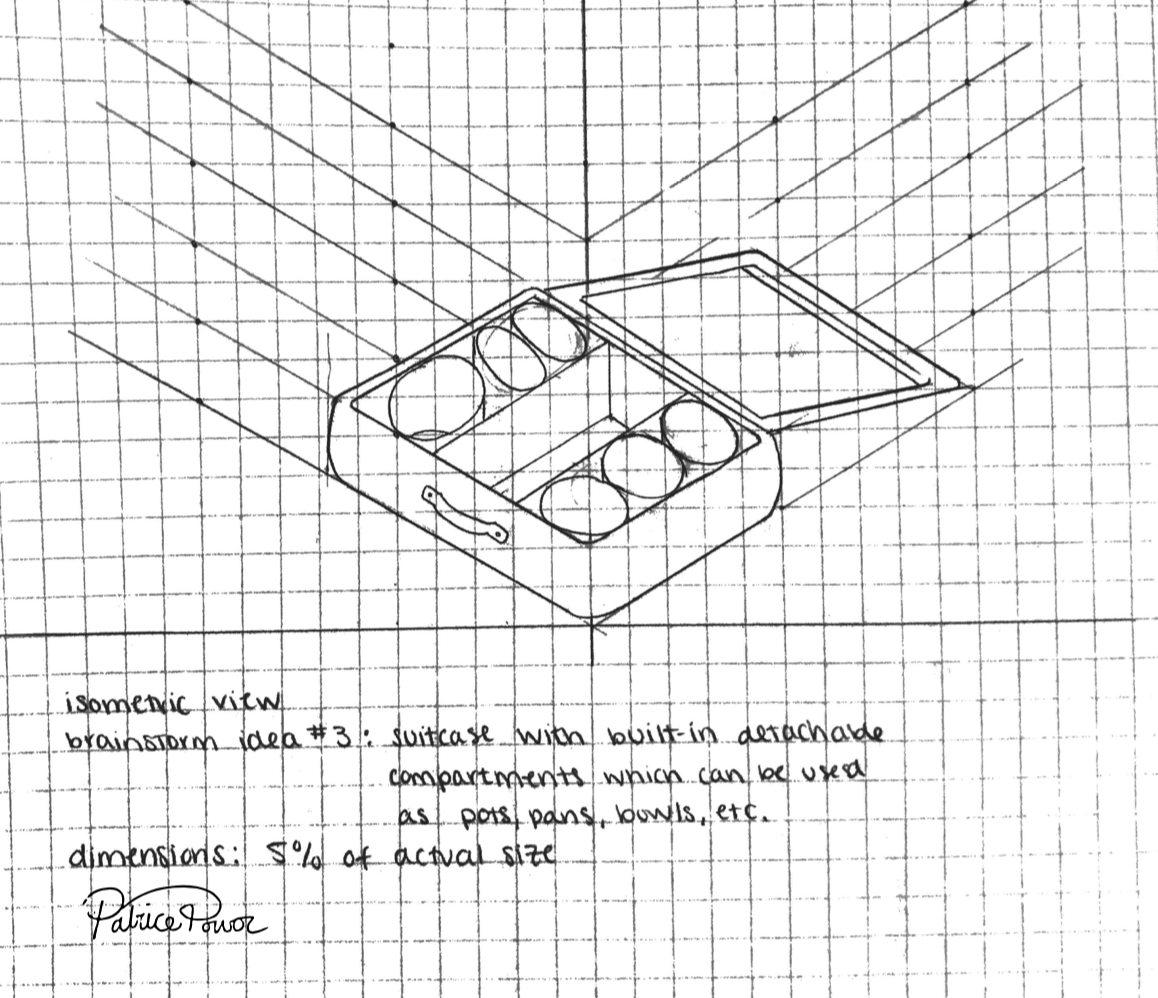 isometric view
brainstorm idea #3: suitcase with built-in detachable
compartments which can be used
as pots, pans, bowls, etc.
dimensions: 5% of actual size
Patrice Power